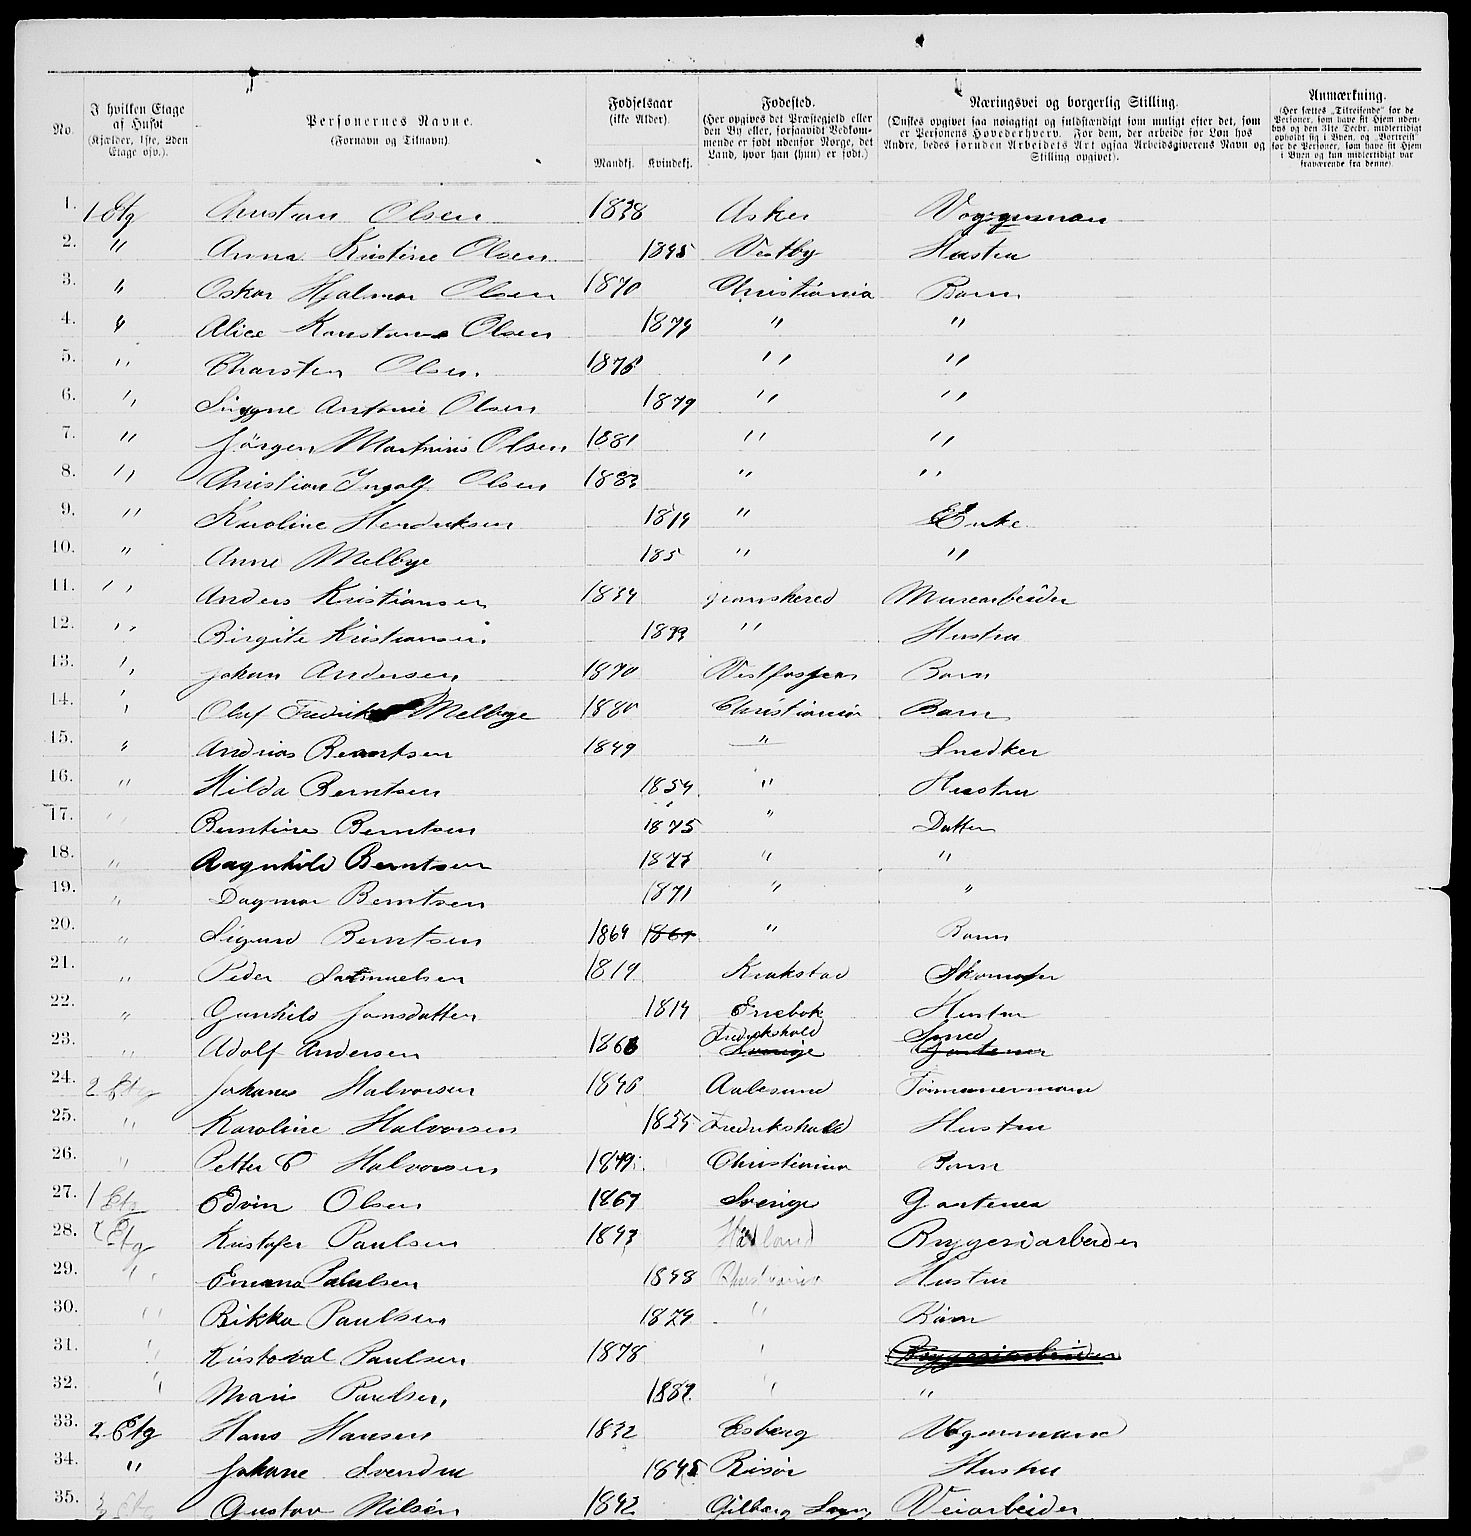 No. | I hvilken Etage af Huset (Kjælder, 1ste, 2den Etage osv.). | Personernes Navne. (Fornavn og Tilnavn). | Fødselsaar (ikke Alder). Mandkj. Kvindekj. | Fødested. (Her opgives det Præstegjeld eller den By eller, forsaavidt Vedkommende er født udenfor Norge, det Land, hvor han (hun) er født.) | Næringsvei og borgerlig Stilling. (Ønskes opgivet saa nøiagtigt og fuldstændigt som muligt efter det, som er Personens Hovederhverv. For dem, der arbeide for Løn hos Andre, bedes foruden Arbeidets Art ogsaa Arbeidsgiverens Navn og Stilling opgivet). | Anmærkning. (Her sættes „Tilreisende" for de Personer, som have sit Hjem udenbys og den 31te Decbr. midlertidigt opholdt sig i Byen, og „Bortreist" for de Personer, som have sit Hjem i Byen og kun midlertidigt var fraværende fra denne).
1. 1 Etg Christian Olsen 1838 Asker Vognman
2. " Anna Kristine Olsen 1845 Vestby Hustru
3. " Oskar Hjalmar Olsen 1870 Christiania Barn
4. " Alice Konstance Olsen 1874 " "
5. " Charsten Olsen 1876 " "
6. " Singne Antonie Olsen 1879 " "
7. " Jørgen Martinius Olsen 1881 " "
8. " Christian Ingolf Olsen 1883 " "
9. " Karoline Hendriksen 1819 " Enke
10. " Anne Melbye 185 " "
11. " Anders Kristiansen 1834 granshered Murearbeider
12. " Birgite Kristiansen " Hustru
13. " Johan Andersen 1870 Vestfossen Barn
14. " Oluf Fredrik Melbye 1880 Christiania Barn
15. " Andreas Berntsen 1849 " Snedker
16. " Hilda Berntsen 1854 " Hustru
17. " Berntine Berntsen 1875 " Datter
18. " Ragnhild Berntsen 1873 " "
19. " Dagmar Berntsen 1871 " "
20. " Sigurd Berntsen 1869 " Barn
21. " Peder Samuelsen 1819 Krakstad Skomager
22. " Gunhild Jonsdatter 1819 Enebak Hustru
23. " Adolf Andersen 1866 Fredrikshald Sverige Smed Gartener
24. 2 Etg Johanes Halvorsen 1846 Aalesund Tømmermand
25. " Karoline Halvorsen 1855 Fredrikshald Hustru
26. " Petter C Halvorsen 1879 Christiania Barn
27. 1 Etg Edvin Olsen 1867 Sverige Gartener
28. 2 Etg Kristofer Paulsen 1843 Hadland Bryggeriarbeider
29. " Emma Paulsen 1848 Christiania Hustru
30. " Rikka Paulsen 1874 " Barn
31. " Kristoval Paulsen 1878 " Bryggeriarbeider
32. " Marie Paulsen " "
33. 2 Etg Hans Hansen 1832 Esberg Vognmand
34. " Johane Svendsen 1845 Risør Hustru
35. Etg Gustav Nilsen 1842 Gilberg Veiarbeider